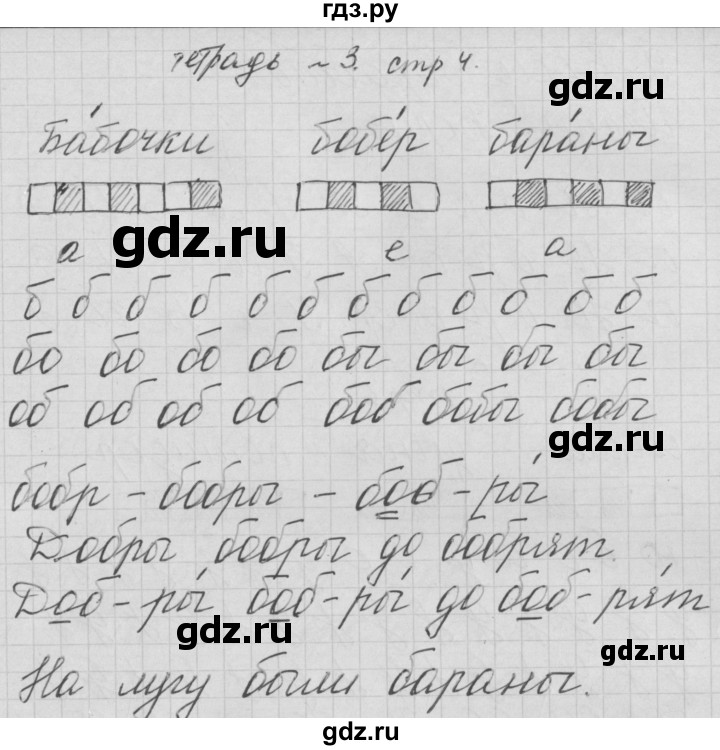 гдз.ру
тетрадь ~ 3. стр 4.
gdz.ru
Ба́бочки бобе́р бара́ны
gdz.ru
а е а
б б б б б б б б б б б б
бо бо бо бо бы бы бы бы
об об об об боб бобы бобы
gdz.ru
бобр - бобры - боб - ры́
Добры бобры до бобрят.
Доб - ры́ боб - ры́ до боб - ря́т
gdz.ru
gdz.ru
На лугу были бараны.
gdz.ru